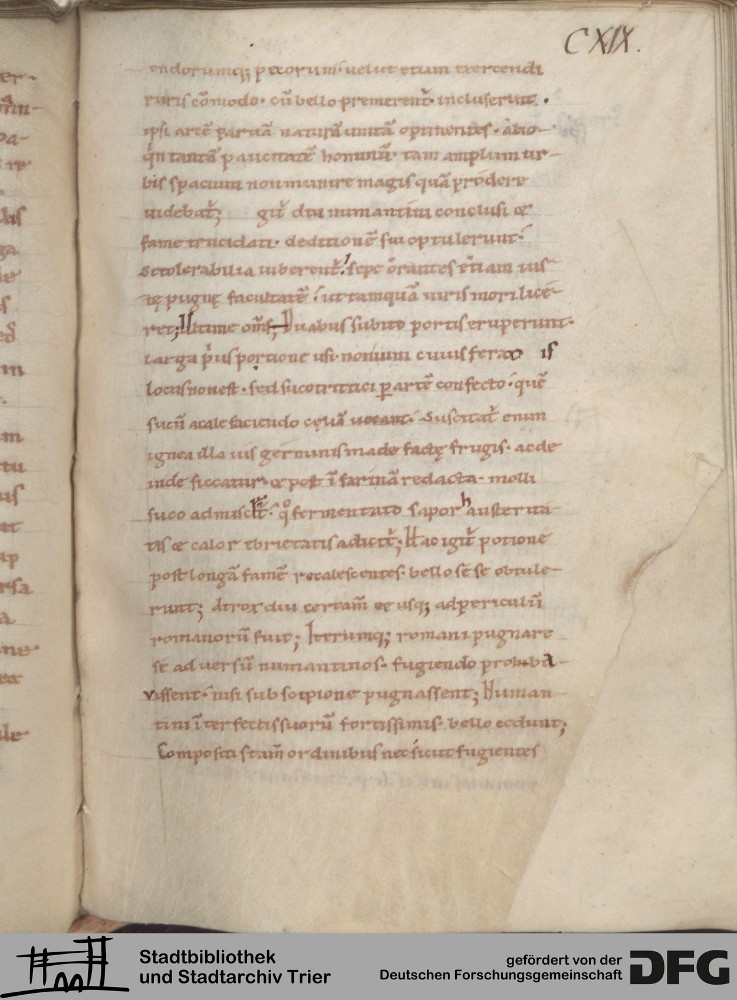 CXIX.
endorumq; pecorum· uelut etiam exercendi
ruris cōmodo· cū bello premerent̄· incluserunt·
ipsi arcē paruā naturā unitā optinentes· alio-
qn̄ tantā paucitatē hominū· tam amplum ur-
bis spacium non munire magis quā prodere
uidebat̄; git̄ diu numantini conclusi &
fame trucidati· deditionē sui optulerunt·
si tolerabilia iuberent̄· sepe orantes &iam ius-
tę pugnę facultatē· ut tamquā uiris mori lice-
ret; Ultime om̄s Duabus subito portis eruperunt·
larga p̄us portione usi· non uini cuius ferax is
locus non est· sed suco tritici p artē confecto· quē
sucū a calefaciendo cęliā uocant· Suscitat̄ enim
ignea illa uis germinis madefactę frugis· ac de
inde siccatur· & post ī farinā redacta· molli
suco admiscet̄· qo fermentato sapor hausterita-
tis & calor ebrietatis adicit̄; Hac igit̄ potione
post longā famē recalescentes· bello sese obtule-
runt; Atrox diu certam̄ & usq; ad periculū
romanorū fuit; Iterumq; romani pugnare
se aduersū numantinos· fugiendo probba-
uissent· nisi sub scipione pugnassent; Numan-
tini īterfectis suorū fortissimis· bello cedunt;
Compositis tam̄ ordinibus nec sicut fugientes
Stadtbibliothek
und Stadtarchiv Trier
gefördert von der
Deutschen Forschungsgemeinschaft
DFG